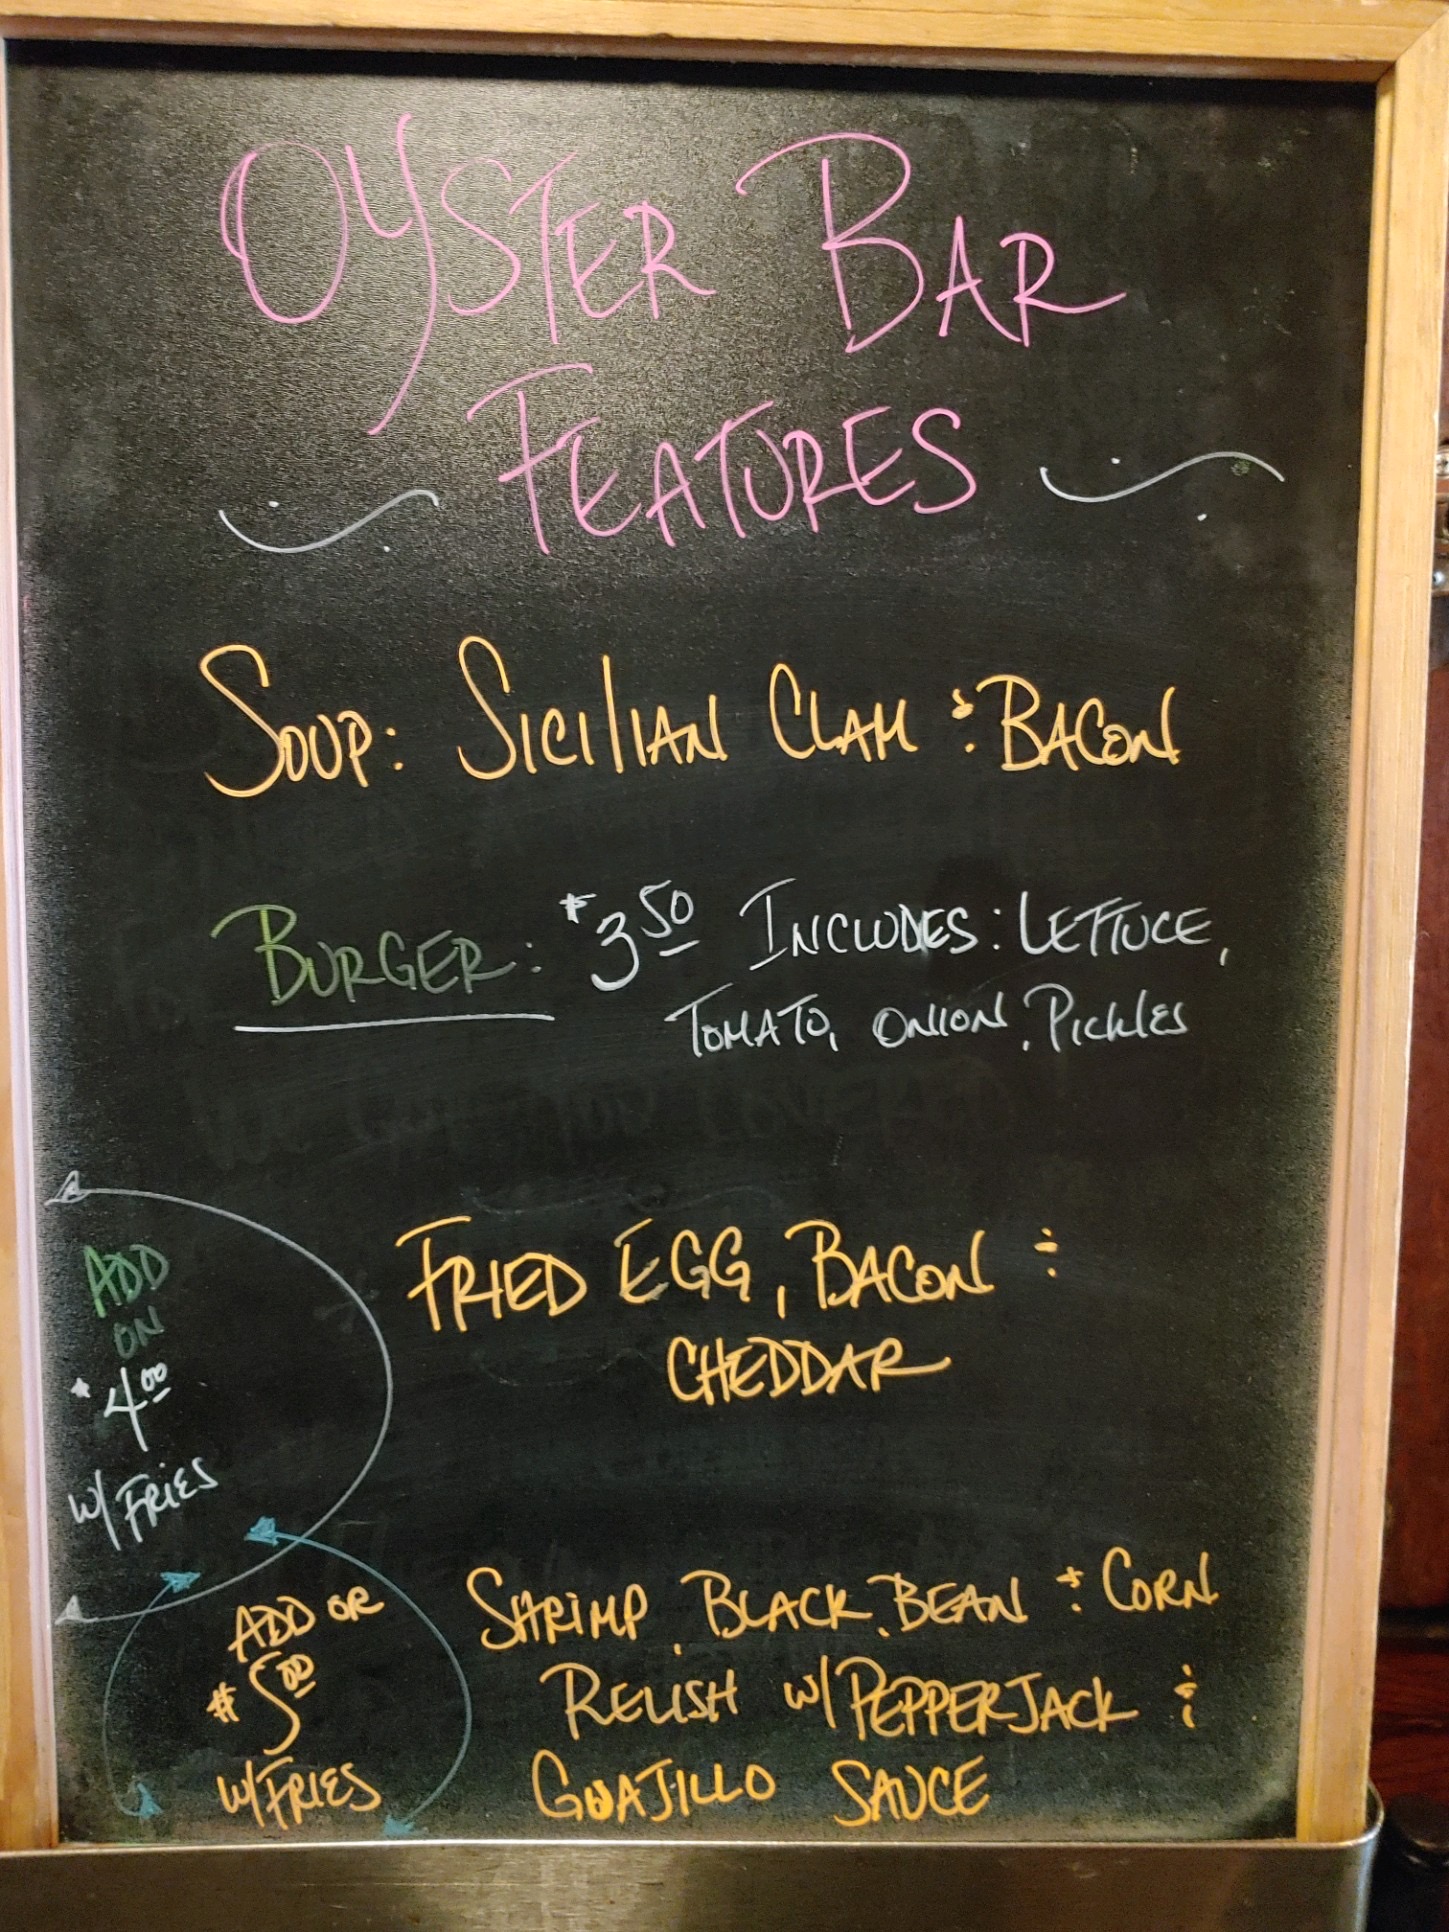 OYSTER BAR
FEATURES
SOUP: SICILIAN CLAM & BACON
BURGER: $3.50 INCLUDES: LETTUCE,
TOMATO, ONION, PICKLES
ADD
ON
$4.00
W/FRIES
FRIED EGG, BACON &
CHEDDAR
ADD OR
$5.00
W/FRIES
SHRIMP, BLACK BEAN & CORN
RELISH W/PEPPERJACK &
GUAJILLO SAUCE